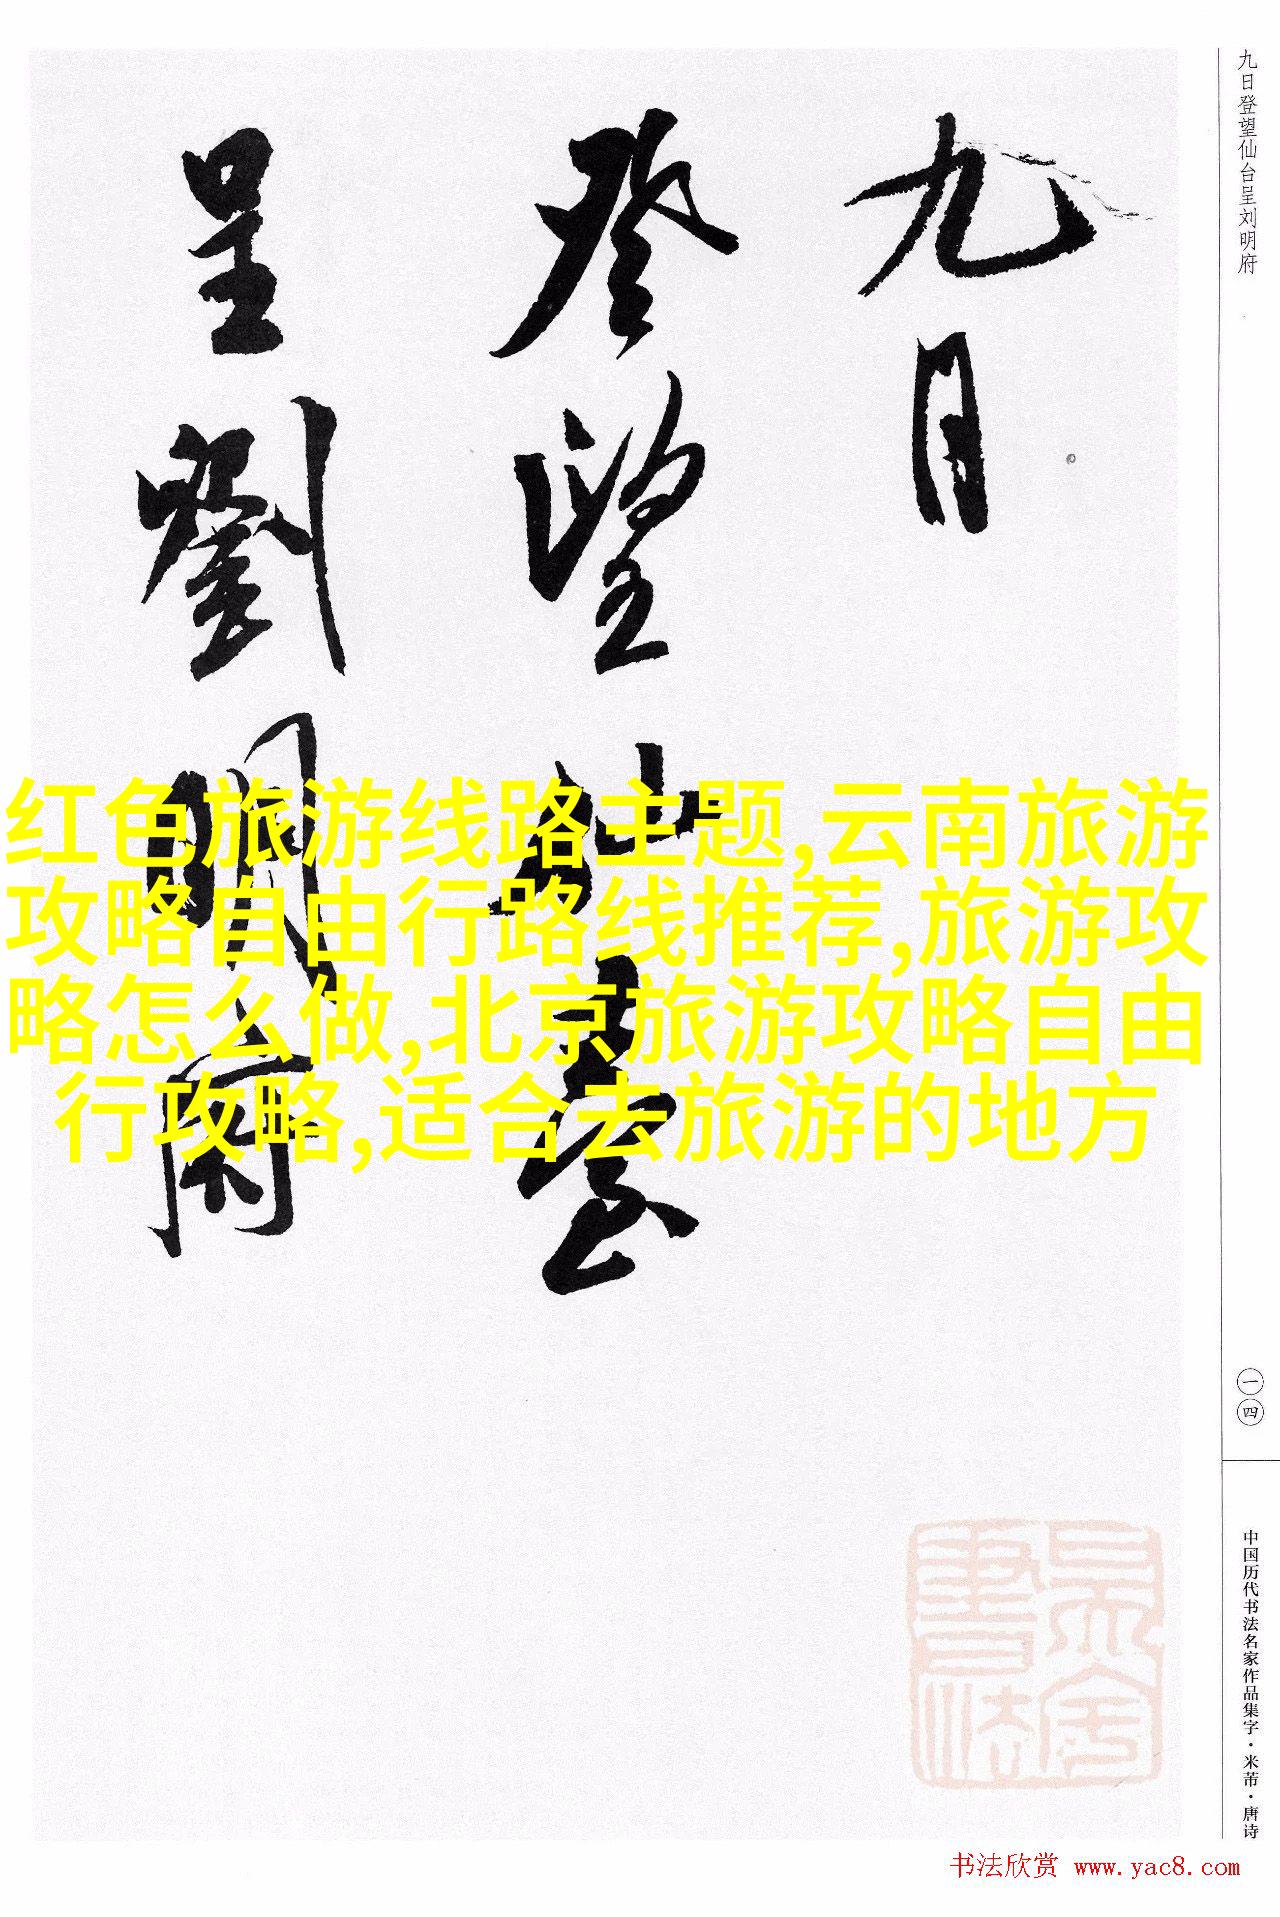 九日登望仙台呈刘明府
九日
登望仙臺
呈劉明府
红色旅游线路主题,云南旅游
攻略自由行路线推荐,旅游攻
略怎么做,北京旅游攻略自由
行攻略,适合去旅游的地方
一四
中国历代书法名家作品集字·米芾·唐诗
书法欣赏 www.yac8.com